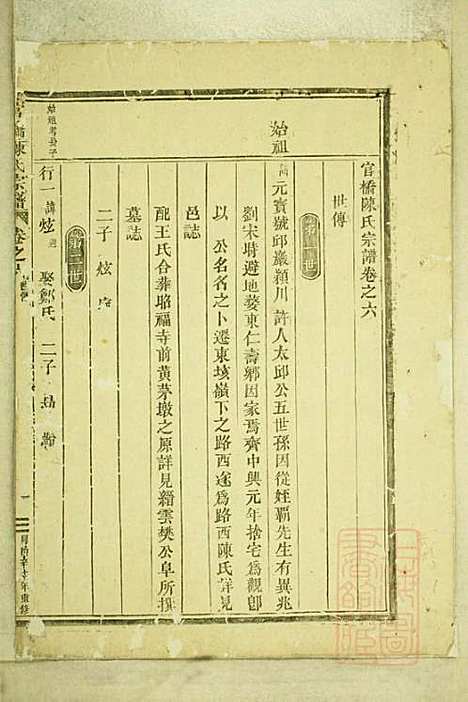 官橋陳氏宗譜卷之六
世傳
第一世
始祖
諱元寶號邱巖潁川許人太邱公五世孫因從姪霸先生有異兆
劉宋時避地婺東仁壽鄉因家焉齊中興元年捨宅為觀卽
以公名名之卜遷東垓嶺下之路西遂為路西陳氏詳見
邑誌
配王氏合葬培福寺前黃茅墩之原詳見縉雲樊公阜所撰
墓誌
二子 炫
第二世
始祖寶公子
行一諱炫 娶鄭氏 二子
陳氏宗譜 卷之六
一
年重修